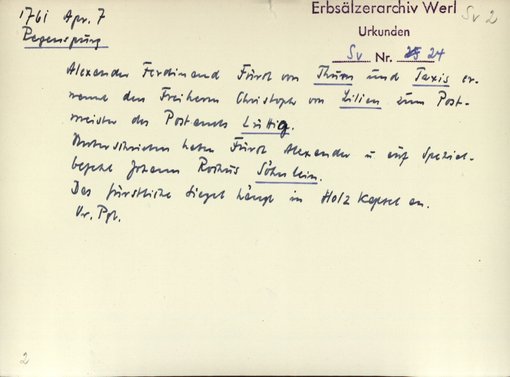 1761 Apr. 7
Regensburg
Erbsälzerarchiv Werl
Sv 2
Urkunden
Sv Nr. 24
Alexander Ferdinand Fürst von Thurn und Taxis er-
nennt den Freiherrn Christoph von Lilien zum Post-
meister des Postamts Lüttig.
Unterschrieben haben Fürst Alexander u auf Spezial-
befehl Johann Rochus Söhnlein.
Das fürstliche Siegel hängt in Holz Kapsel an.
Or. Pgt.
2